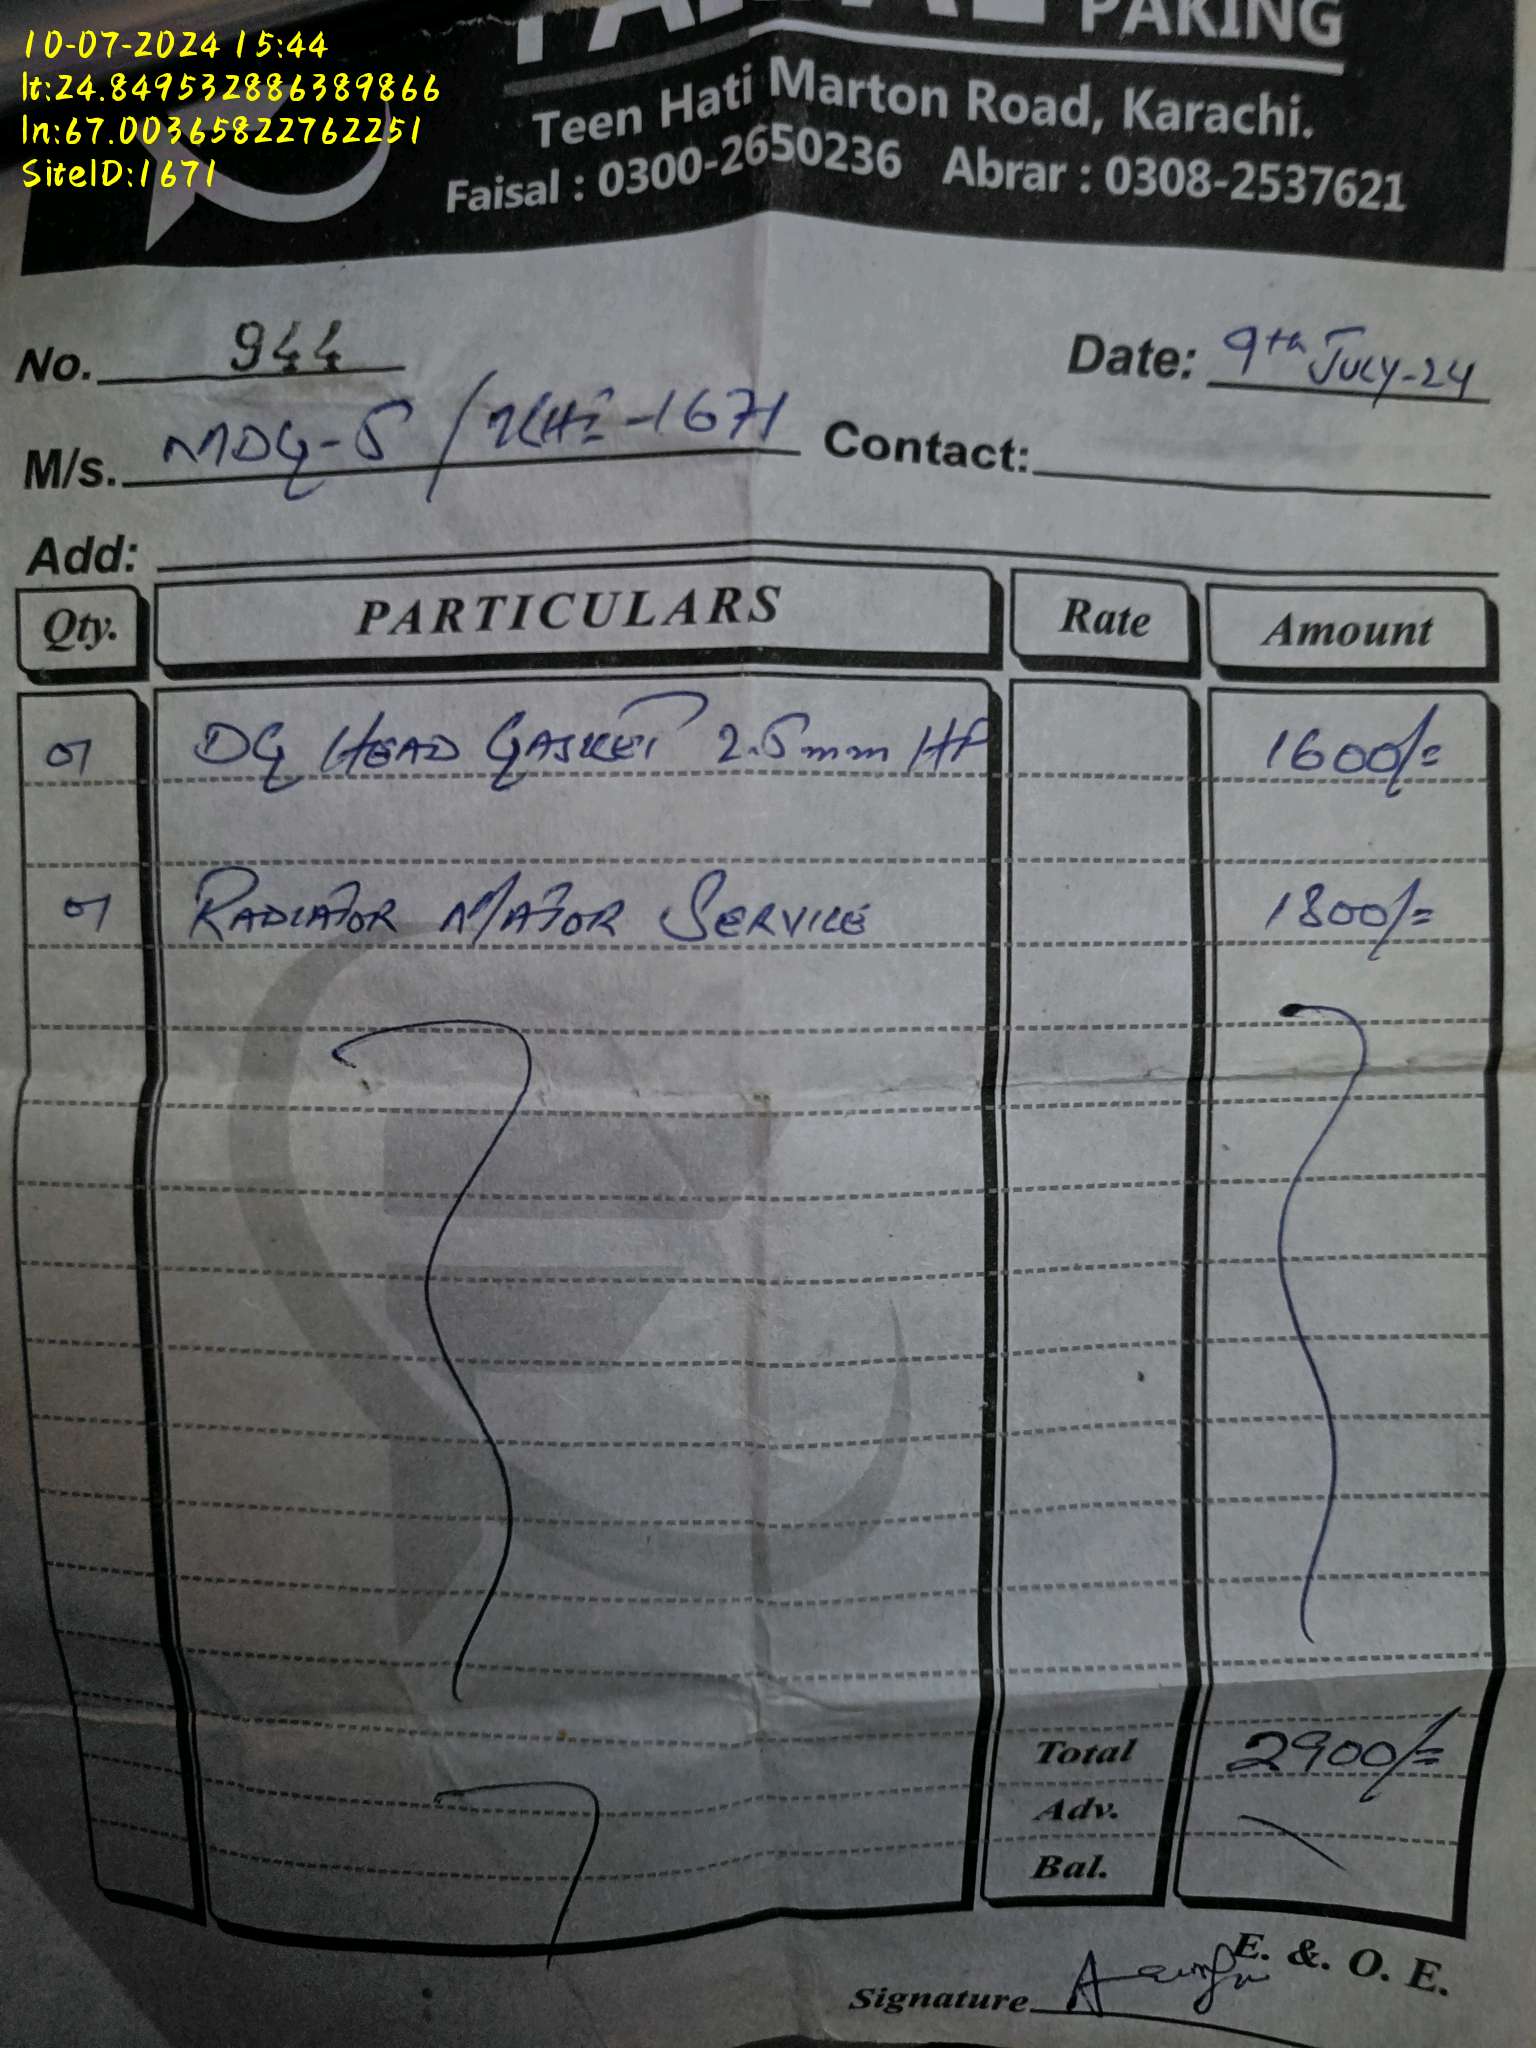 10-07-2024 15:44
lt:24.849532886389866
ln:67.00365822762251
SiteID:1671
PAKING
Teen Hati Marton Road, Karachi.
Faisal : 0300-2650236 Abrar : 0308-2537621
No. 944 Date: 9th JULY-24
M/s. MDG-5 / KHI-1671 Contact:
Add:
Qty. PARTICULARS Rate Amount
01 DG HEAD GASKET 2.5mm HP 1600/=
01 RADIATOR MATOR SERVICE 1300/=
Total 2900/=
Adv.
Bal.
E. & O. E.
Signature